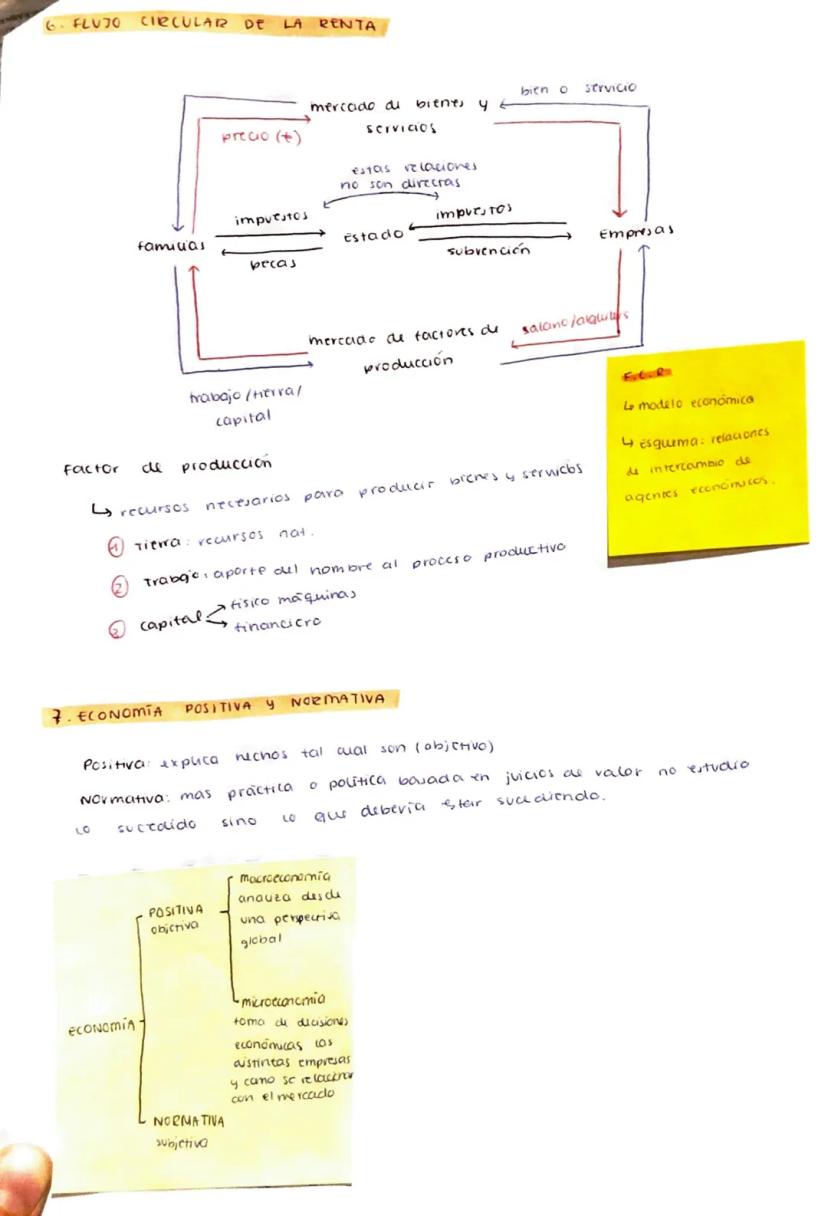 6. FLUJO CIRCULAR DE LA RENTA
bien o servicio
mercado de bienes y
servicios
precio (+)
estas relaciones
no son directas
impuestos
impuestos
familias
estado
Empresas
becas
subvención
mercado de factores de
producción
salario/alquileres
trabajo/tierra/
capital
F.C.R
↳ modelo económico
↳ esquema: relaciones
de intercambio de
agentes económicos.
Factor de producción
↳ recursos necesarios para producir bienes y servicios
1 Tierra: recursos nat.
2 Trabajo: aporte del hombre al proceso productivo
3 capital
físico máquinas
financiero
7. ECONOMÍA POSITIVA Y NORMATIVA
Positiva: explica hechos tal cual son (objetivo)
Normativa: mas práctica o política basada en juicios de valor no estudio
lo sucedido sino lo que debería estar sucediendo.
ECONOMÍA
POSITIVA
objetiva
macroeconomía
analiza desde
una perspectiva
global
microeconomía
toma de decisiones
económicas los
distintas empresas
y como se relacionan
con el mercado
NORMATIVA
subjetiva